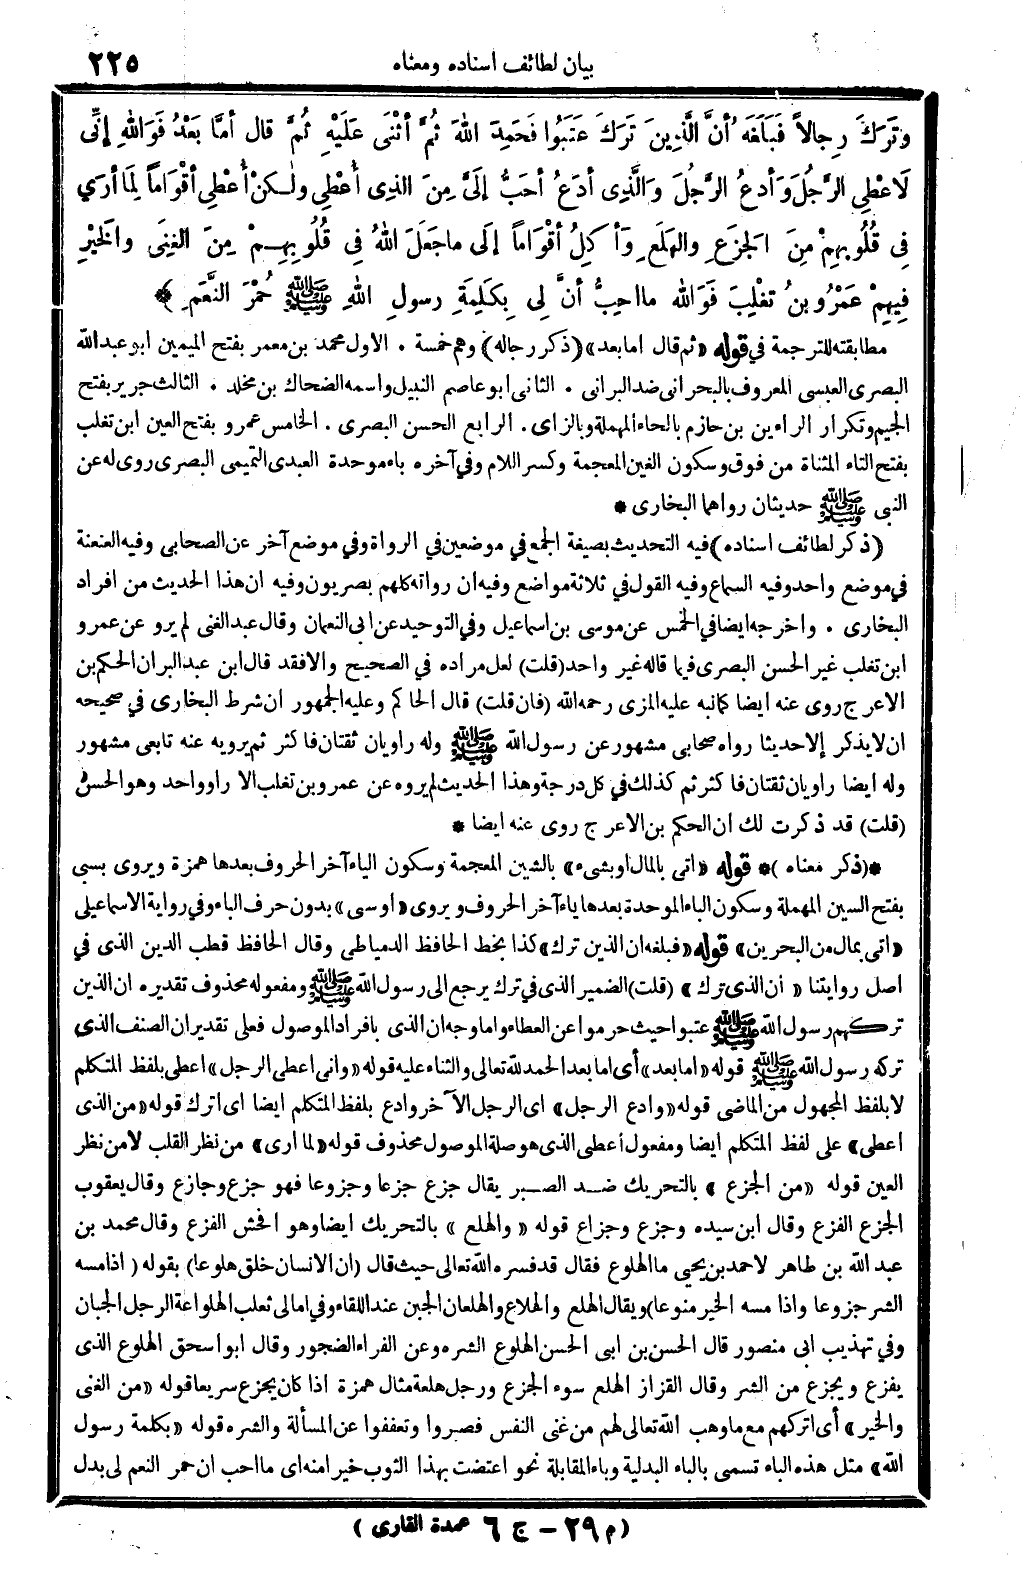 بيان لطائف اسناده ومعناه
٢٢٥
وتَرَكَ رِجالاً فَبَلَغَهُ أنَّ الَّذِينَ تَرَكَ عَتَبُوا فَحَمِدَ اللهَ ثُمَّ أثْنَى عَلَيْهِ ثُمَّ قال أمَّا بَعْدُ فَوَاللهِ إنِّى
لَاعْطِى الرَّجُلَ وَأدعُ الرَّجُلَ وَالَّذِى أدَعُ أحَبُّ إلَىَّ مِنَ الذِى أُعْطِى ولٰكنْ أُعْطِى أقْوَاماً لِمَا أرَي
فِى قُلُوبِهِمْ مِنَ الجَزَعِ والهَلَعِ وَأكِلُ أقْوَاماً إلَى ماجَعَلَ اللهُ فِى قُلُوبِهِمْ مِنَ الغِنَى والخَيْرِ
فِيهِمْ عَمْرُو بنُ تَغْلِبَ فَوَاللهِ مااحِبُّ أنَّ لِى بِكَلِمَةِ رسولِ اللهِ ﷺ حُمْرَ النَّعَمِ ﴾
مطابقته للترجمة في قوله «ثم قال اما بعد» (ذكر رجاله) وهم خمسة . الاول محمد بن معمر بفتح الميمين ابو عبد الله
البصرى العبسى المعروف بالبحرانى ضد البرانى . الثانى ابو عاصم النبيل واسمه الضحاك بن مخلد . الثالث جرير بفتح
الجيم وتكرار الراءين بن حازم بالحاء المهملة وبالزاى . الرابع الحسن البصرى . الخامس عمرو بفتح العين ابن تغلب
بفتح التاء المثناة من فوق وسكون الغين المعجمة وكسر اللام وفي آخره باء موحدة العبدى التميمى البصرى روى له عن
النبى ﷺ حديثان رواهما البخارى *
(ذكر لطائف اسناده) فيه التحديث بصيغة الجمع في موضعين في الرواة وفي موضع آخر عن الصحابى وفيه العنعنة
في موضع واحد وفيه السماع وفيه القول في ثلاثة مواضع وفيه ان رواته كلهم بصريون وفيه ان هذا الحديث من افراد
البخارى . واخرجه ايضا في الخمس عن موسى بن اسماعيل وفي التوحيد عن ابى النعمان وقال عبد الغنى لم يرو عن عمرو
ابن تغلب غير الحسن البصرى فيما قاله غير واحد (قلت) لعل مراده في الصحيح والا فقد قال ابن عبد البر ان الحكم بن
الاعرج روى عنه ايضا كما نبه عليه المزى رحمه الله (فان قلت) قال الحاكم وعليه الجمهور ان شرط البخارى في صحيحه
ان لا يذكر إلا حديثا رواه صحابى مشهور عن رسول الله ﷺ وله راويان ثقتان فاكثر ثم يرويه عنه تابعى مشهور
وله ايضا راويان ثقتان فاكثر ثم كذلك في كل درجة وهذا الحديث لم يروه عن عمرو بن تغلب الا راو واحد وهو الحسن
(قلت) قد ذكرت لك ان الحكم بن الاعرج روى عنه ايضا *
*(ذكر معناه)* قوله «اتى بالمال او بشىء» بالشين المعجمة وسكون الياء آخر الحروف بعدها همزة ويروى بسبى
بفتح السين المهملة وسكون الباء الموحدة بعدها ياء آخر الحروف ويروى «اوسى» بدون حرف الباء وفي رواية الاسماعيلى
«اتى بمال من البحرين» قوله «فبلغه ان الذين ترك» كذا بخط الحافظ الدمياطى وقال الحافظ قطب الدين الذى في
اصل روايتنا « أن الذى ترك » (قلت) الضمير الذى في ترك يرجع الى رسول الله ﷺ ومفعوله محذوف تقديره ان الذين
تركهم رسول الله ﷺ عتبوا حيث حرموا عن العطاء واما وجه ان الذى بافراد الموصول فعلى تقدير ان الصنف الذى
تركه رسول الله ﷺ قوله «اما بعد» أى اما بعد الحمد لله تعالى والثناء عليه قوله «وانى اعطى الرجل» اعطى بلفظ المتكلم
لا بلفظ المجهول من الماضى قوله «وادع الرجل» اى الرجل الآخر وادع بلفظ المتكلم ايضا اى اترك قوله «من الذى
اعطى» على لفظ المتكلم ايضا ومفعول أعطى الذى هو صلة الموصول محذوف قوله «لما ارى» من نظر القلب لا من نظر
العين قوله «من الجزع » بالتحريك ضد الصبر يقال جزع جزعا وجزوعا فهو جزع وجازع وقال يعقوب
الجزع الفزع وقال ابن سيده وجزع وجزاع قوله « والهلع » بالتحريك ايضا وهو افحش الفزع وقال محمد بن
عبد الله بن طاهر لاحمد بن يحيى ما الهلوع فقال قد فسره الله تعالى حيث قال (ان الانسان خلق هلوعا) بقوله ( اذا مسه
الشر جزوعا واذا مسه الخير منوعا) ويقال الهلع والهلاع والهلعان الجبن عند اللقاء وفي امالى ثعلب الهلواعة الرجل الجبان
وفي تهذيب ابى منصور قال الحسن بن ابى الحسن الهلوع الشره وعن الفراء الضجور وقال ابو اسحق الهلوع الذى
يفزع ويجزع من الشر وقال القزاز الهلع سوء الجزع ورجل هلعة مثال همزة اذا كان يجزع سريعا قوله «من الغنى
والخير» أى اتركهم مع ما وهب الله تعالى لهم من غنى النفس فصبروا وتعففوا عن المسألة والشره قوله «بكلمة رسول
الله» مثل هذه الباء تسمى بالباء البدلية وباء المقابلة نحو اعتضت بهذا الثوب خيرا منه اى ما احب ان حمر النعم لى بدل
(م ٢٩ - ج ٦ عمدة القارى )